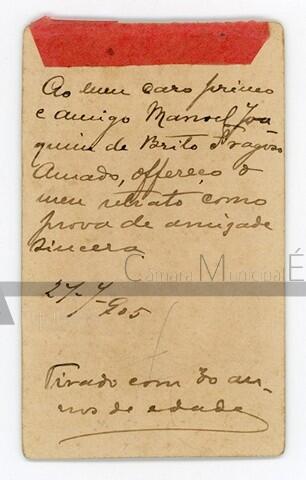 Ao meu caro primo
e amigo Manoel Joa
quim de Brito Fragoso
Amado, offereço o
meu retrato como
prova de amizade
sincera
Câmara Municipal É
A
27-7-905
Tirado com 30 an-
nos de edade